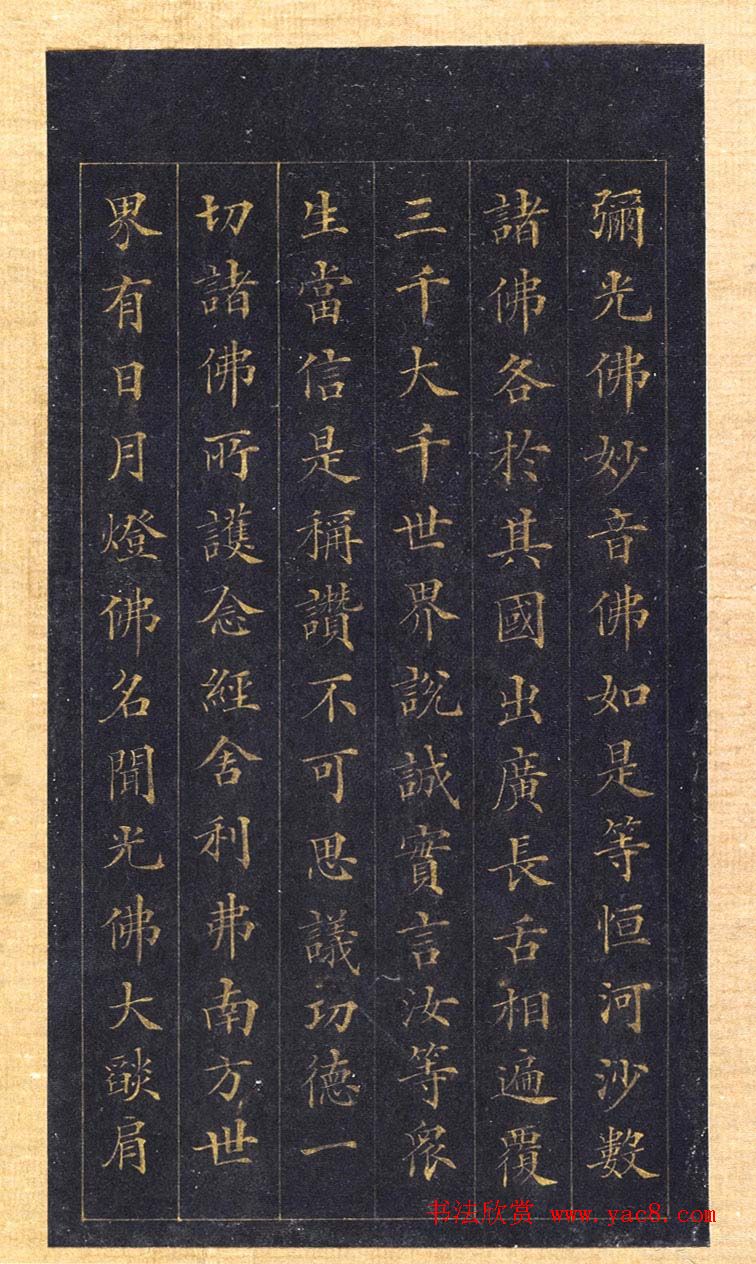 彌光佛妙音佛如是等恒河沙數
諸佛各於其國出廣長舌相遍覆
三千大千世界說誠實言汝等眾
生當信是稱讚不可思議功德一
切諸佛所護念經舍利弗南方世
界有日月燈佛名聞光佛大燄肩
书法欣赏 www.yac8.com